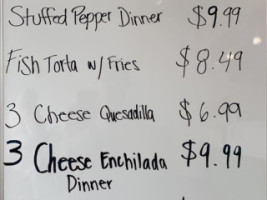 Stuffed Pepper Dinner $9.99
Fish Torta w/ Fries $8.49
3 Cheese Quesadilla $6.99
3 Cheese Enchilada $9.99
Dinner